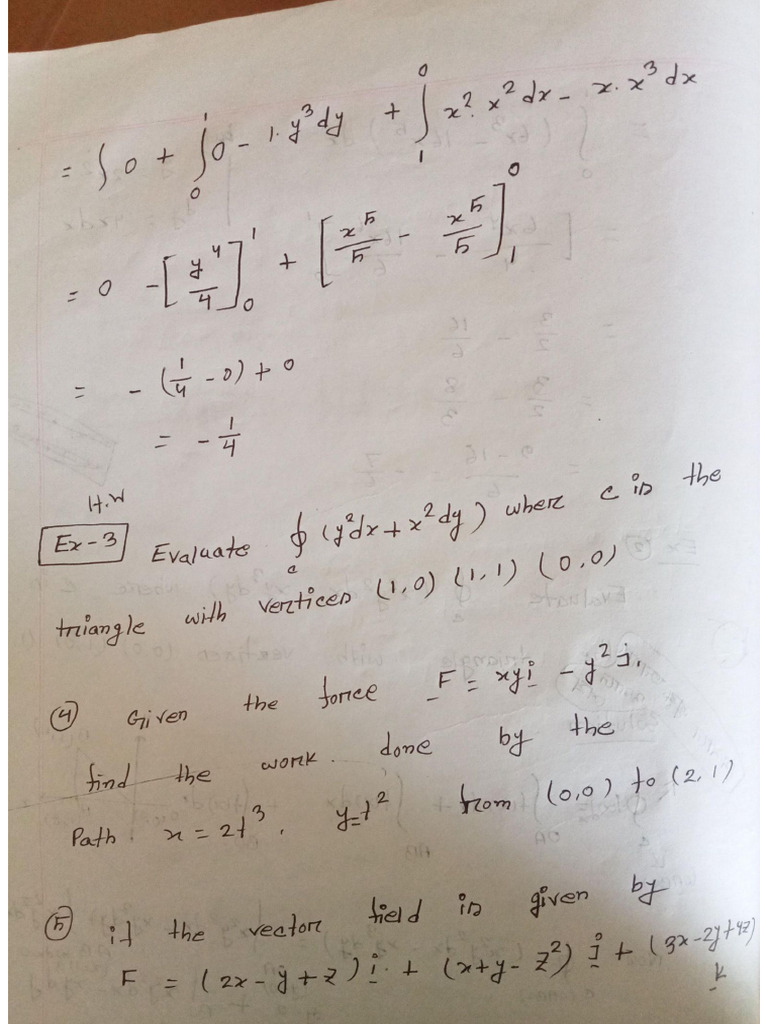 = ∫ 0 + ∫₀¹ 0 - 1. y³ dy + ∫₁⁰ x². x² dx - x. x³ dx
= 0 - [y⁴/4]₀¹ + [x⁵/5 - x⁵/5]₁⁰
= - (1/4 - 0) + 0
= - 1/4
H.W
Ex-3 Evaluate ∮c (y²dx + x²dy) where c is the
triangle with vertices (1,0) (1,1) (0,0)
④ Given the force F = xyi - y²j.
find the work. done by the
Path. x = 2t³, y=t² from (0,0) to (2,1)
⑤ if the vector field is given by
F = (2x - y + z) i + (x+y - z²) j + (3x-2y+4z)
k